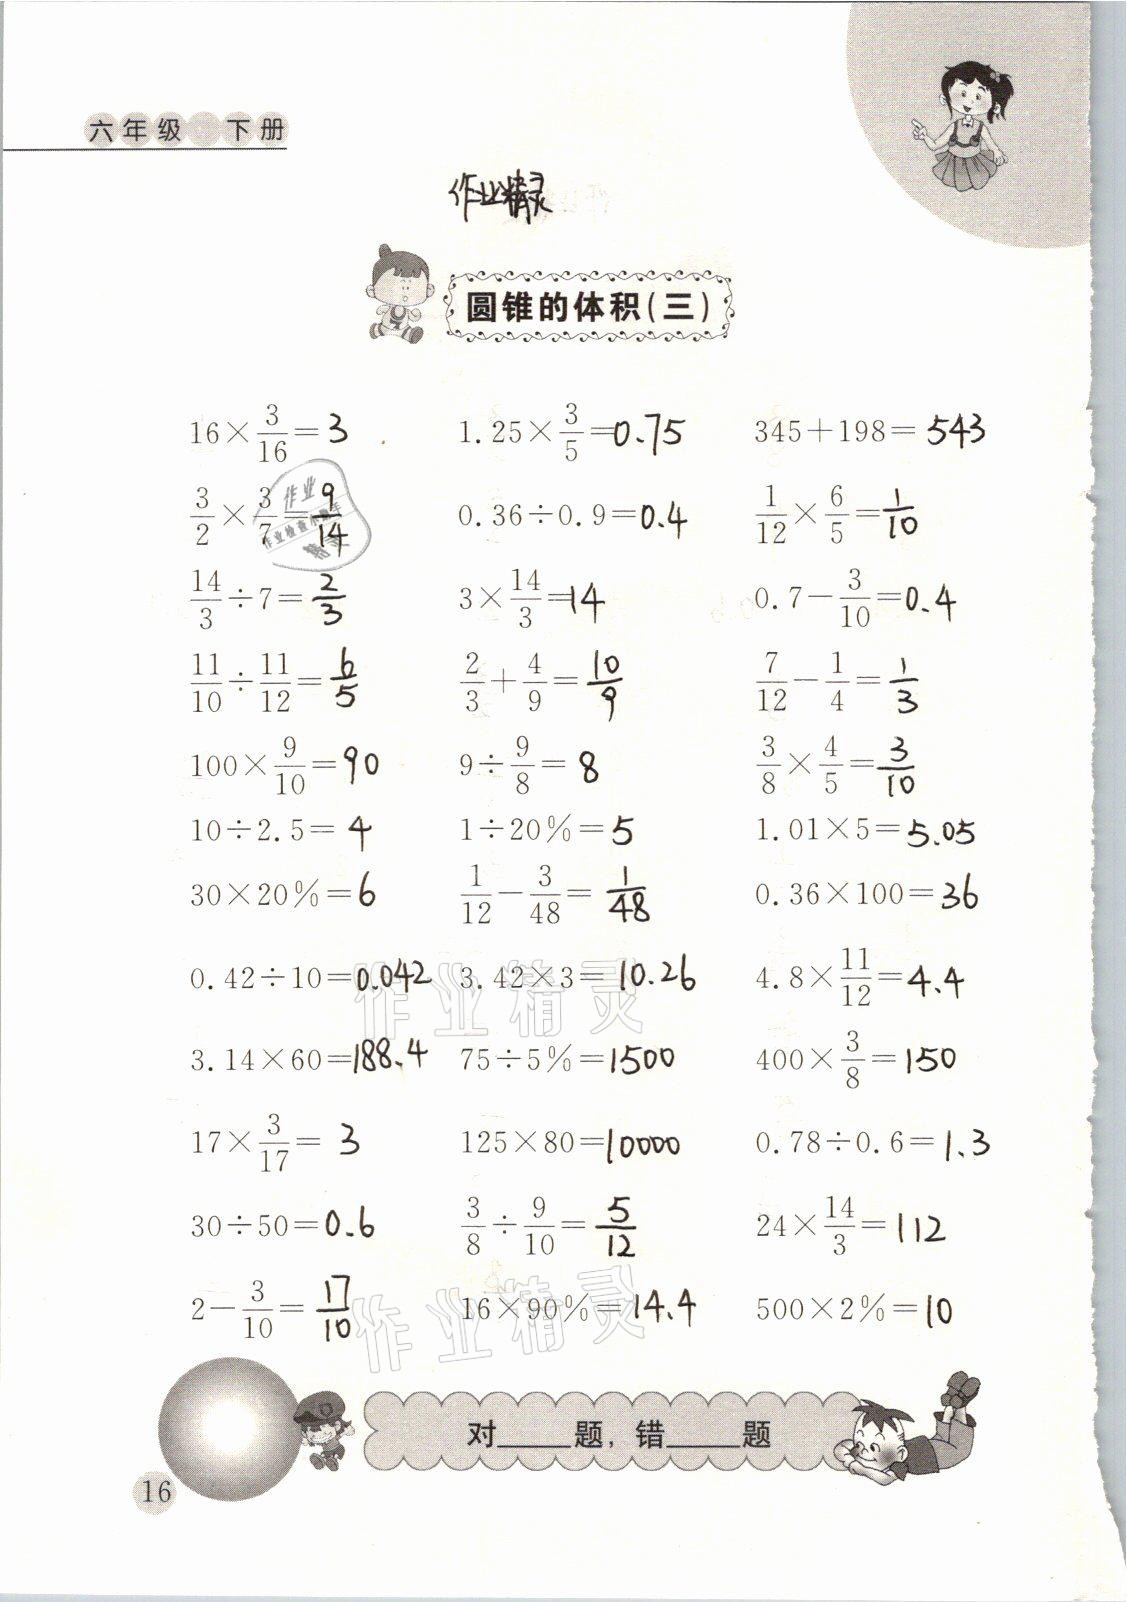 六年级 下册
作业精灵
圆锥的体积(三)
16×3/16=3 1.25×3/5=0.75 345+198=543
3/2×3/7=9/14 0.36÷0.9=0.4 1/12×6/5=1/10
14/3÷7=2/3 3×14/3=14 0.7-3/10=0.4
11/10÷11/12=6/5 2/3+4/9=10/9 7/12-1/4=1/3
100×9/10=90 9÷9/8=8 3/8×4/5=3/10
10÷2.5=4 1÷20%=5 1.01×5=5.05
30×20%=6 1/12-3/48=1/48 0.36×100=36
0.42÷10=0.042 3.42×3=10.26 4.8×11/12=4.4
作业精灵
3.14×60=188.4 75÷5%=1500 400×3/8=150
17×3/17=3 125×80=10000 0.78÷0.6=1.3
30÷50=0.6 3/8÷9/10=5/12 24×14/3=112
2-3/10=17/10 16×90%=14.4 500×2%=10
作业精灵
对____题,错____题
16